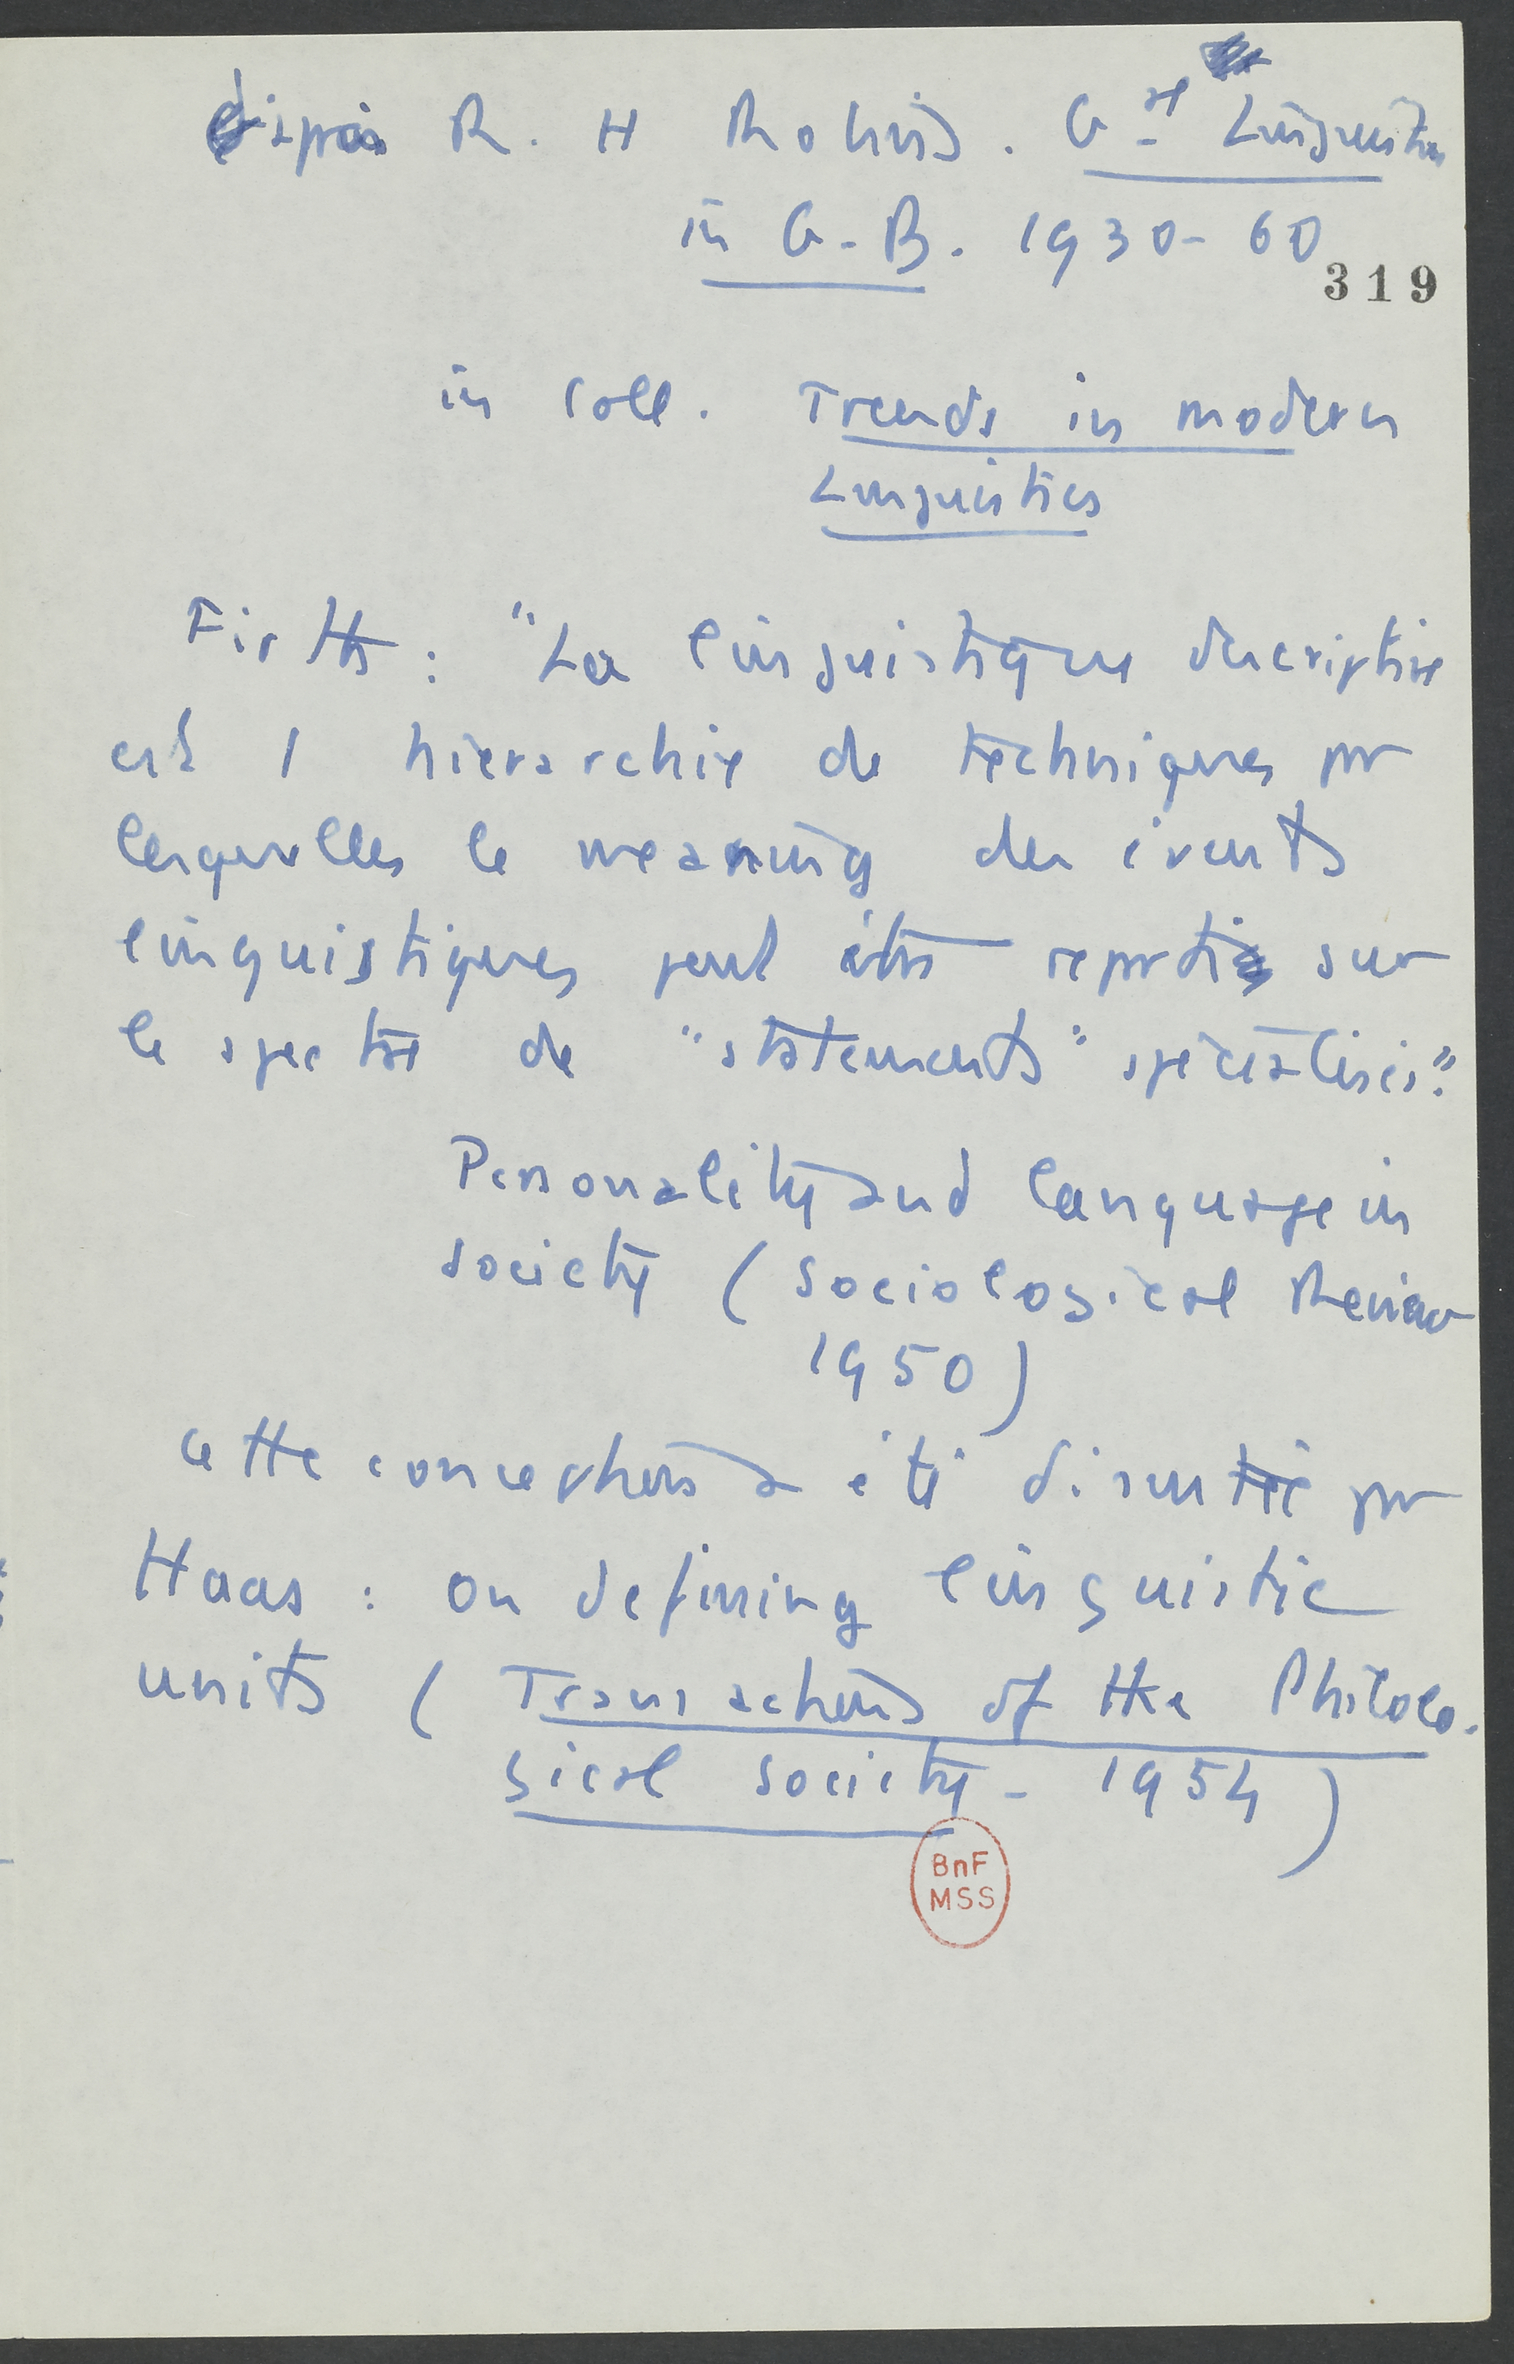 d'après R. H Robins. Gal Linguistics
in G-B. 1930-60
319
in Coll. Trends in modern
Linguistics
Firth : "La linguistique descriptive
est 1 hierarchie de techniques par
lesquelles le meaning des events
linguistiques peut être reporté sur
le spectre de "statements" spécialisés".
Personality and language in
society (Sociological Review
1950)
cette conception a été discutée par
Haas : on defining linguistic
units ( Transactions of the Philolo-
gical society - 1954)
BnF
MSS